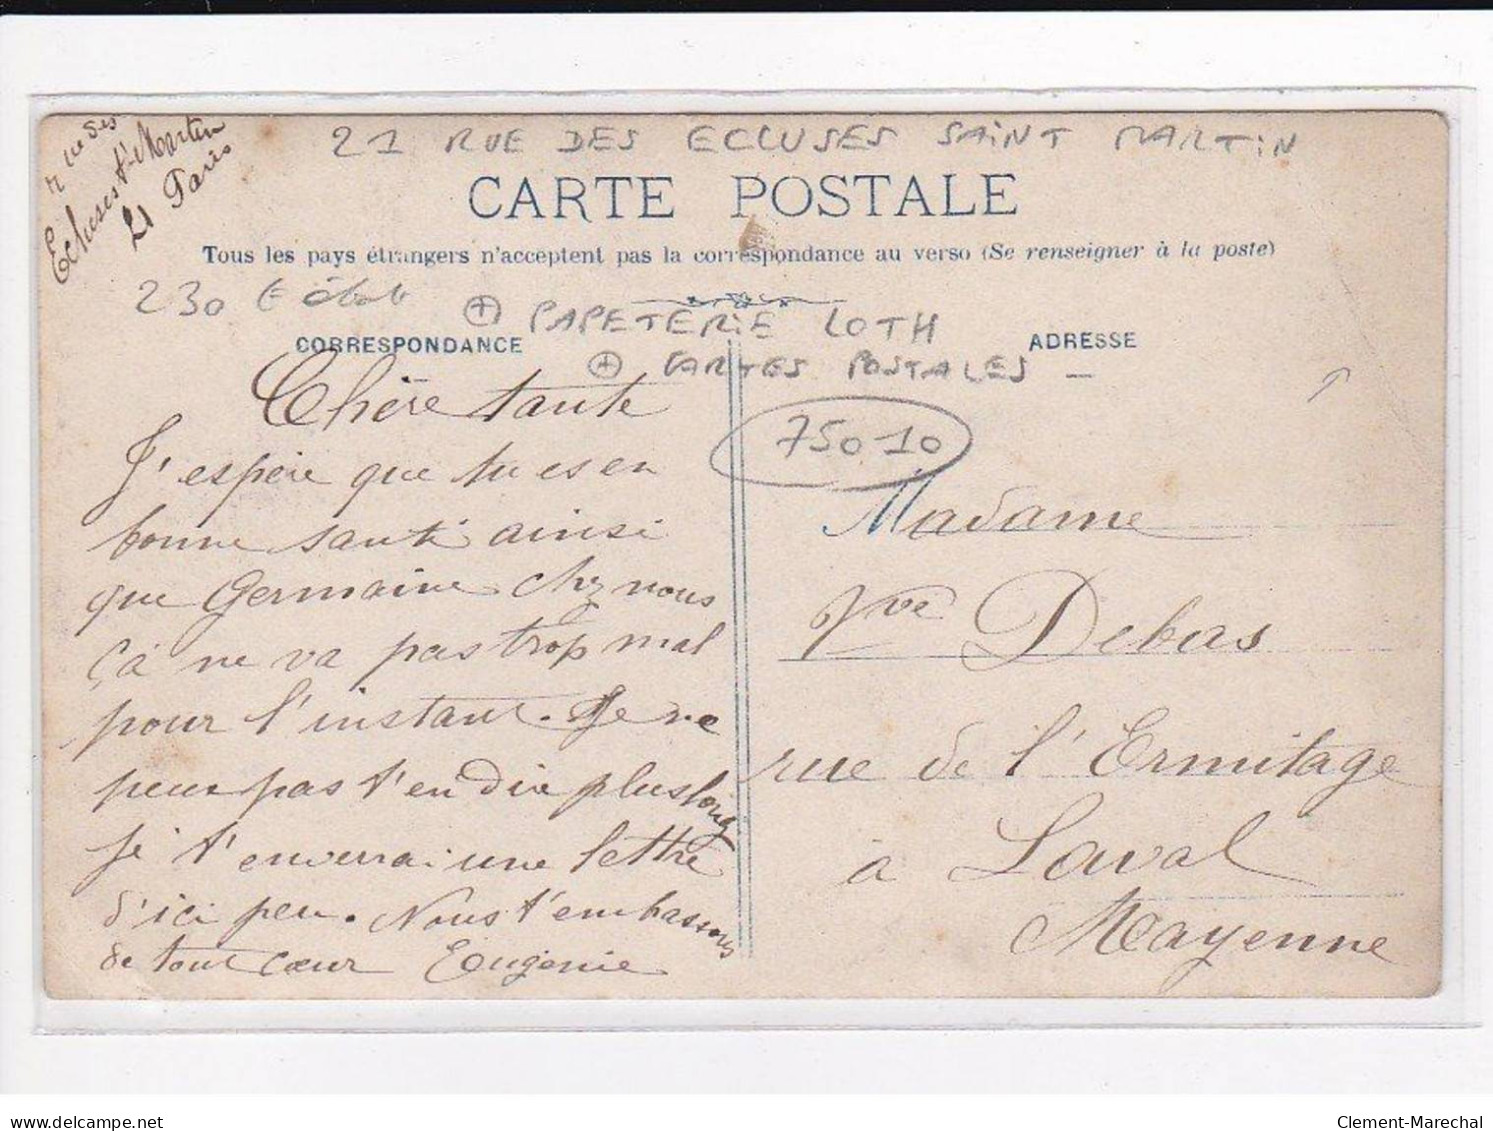 rue des
Ecluses St-Martin
21 Paris
21 RUE DES ECLUSES SAINT MARTIN
CARTE POSTALE
Tous les pays étrangers n'acceptent pas la correspondance au verso (Se renseigner à la poste)
230 €
+ PAPETERIE LOTH
CORRESPONDANCE
ADRESSE
+ CARTES POSTALES -
75010
Chère tante
J'espère que tu es en
bonne santé ainsi
que Germaine chz nous
çà ne va pas trop mal
pour l'instant. Je ne
peux pas t'en dire plus long
je t'enverrai une lettre
d'ici peu. Nous t'embassons
de tout cœur Eugénie
Madame
Vve Debas
rue de l'Ermitage
à Laval
Mayenne
www.delcampe.net
Clement-Marechal